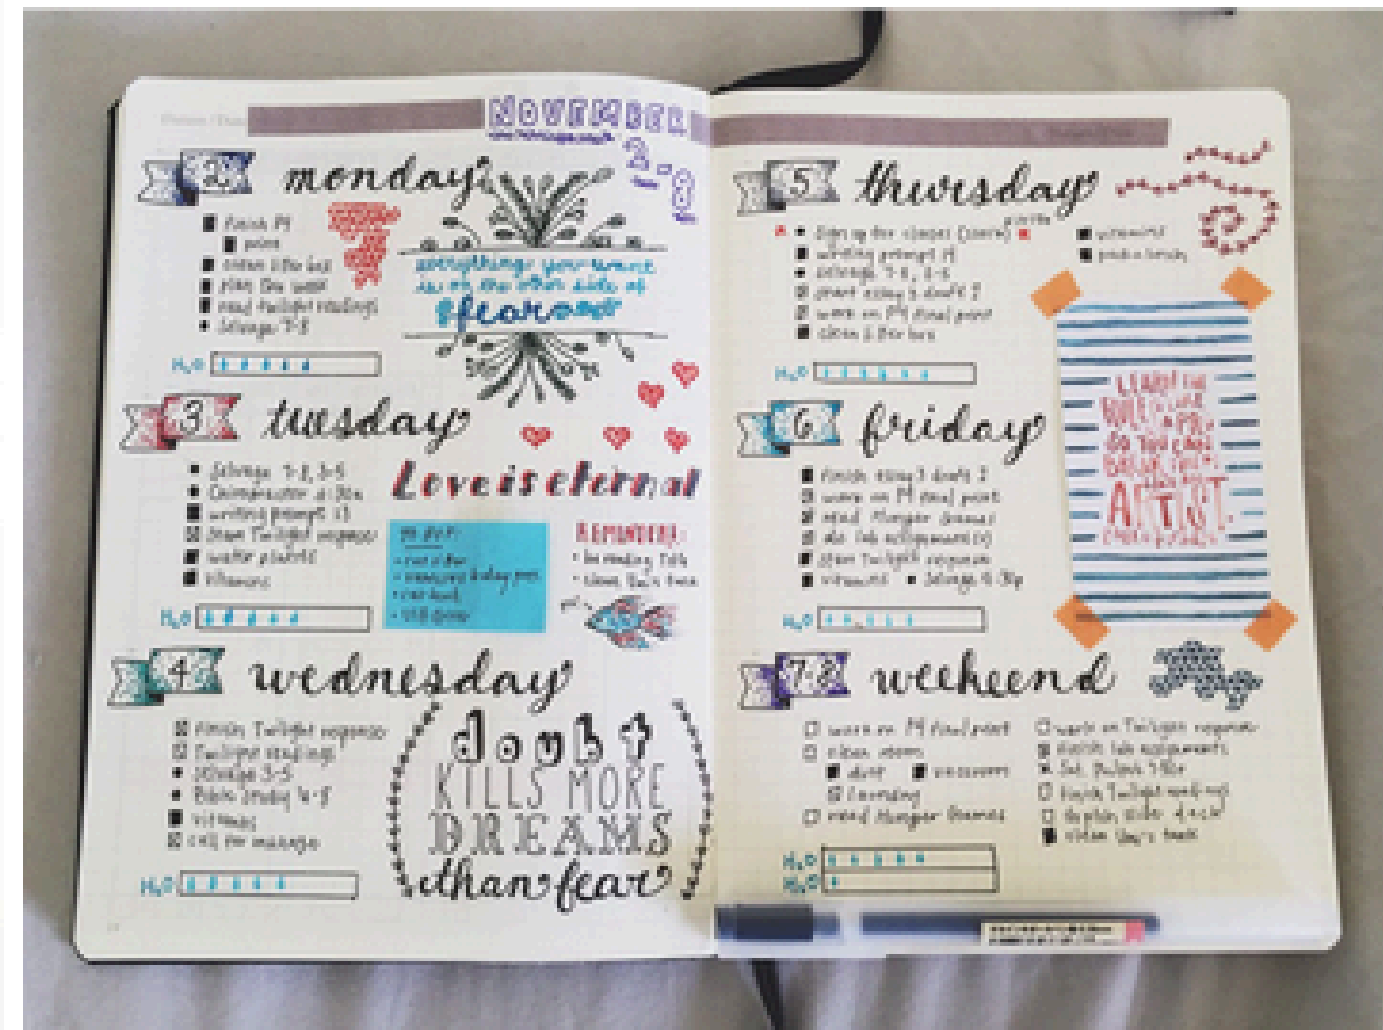 NOVEMBER
2-8
2 monday
Finish P4
print
clean litter box
plan the week
read twilight readings
Selvage 7-8
everything you want
is on the other side of
fear
H2O
3 tuesday
Selvage 7-8, 3-5
Chiropractor
writing prompt 13
Start Twilight response
water plants
vitamins
H2O
Love is eternal
TO BUY:
REMINDERS:
4 wednesday
Finish Twilight response
Twilight readings
Selvage 3-5
Bible Study 6-8
vitamins
call for massage
H2O
doubt
KILLS MORE
DREAMS
than fear
5 thursday
sign up for classes
writing prompt 14
Selvage 7-8, 3-5
start essay 3 draft 2
work on P4 final print
clean litter box
vitamins
pack lunch
H2O
LEARN THE
RULES LIKE
A PRO
SO YOU CAN
BREAK THEM
LIKE AN
ARTIST.
6 friday
Finish essay 3 draft 2
work on P4 final print
read Hunger Games
do lab assignment(s)
start Twilight response
vitamins
Selvage
H2O
7-8 weekend
work on P4 final print
clean room
dust
vacuum
laundry
read Hunger Games
work on Twilight response
finish lab assignments
finish Twilight readings
H2O
H2O